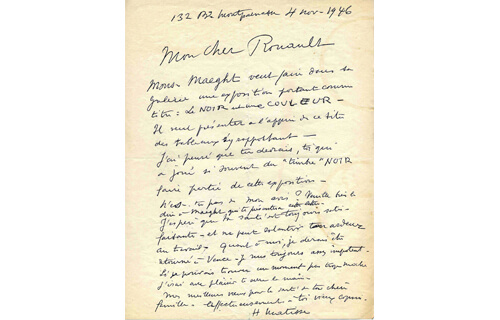 132 Bd Montparnasse 4 nov - 1946
Mon cher Rouault
Mons. Maeght veut faire dans sa
Galerie une exposition portant comme
titre : Le NOIR est une COULEUR -
Il veut présenter à l'appui de ce titre
des tableaux s'y rapportant -
J'ai pensé que tu devrais, toi qui
a joué si souvent du "timbre" NOIR
faire partie de cette exposition -
N'es-tu pas de mon avis ? Veuille bien le
dire à Maeght qui te présentera cette lettre.
J'espère que ta santé est toujours satis-
faisante - et ne peut ralentir ton ardeur
au travail - Quant à moi, je devrais être
retourné à Vence - Je suis toujours assez impotent.
Si je pouvais trouver un moment pas trop
j'irais avec plaisir te serrer la main -
Mes meilleurs vœux pour la santé de ta chère
famille - affectueusement à toi vieux copain.
H Matisse